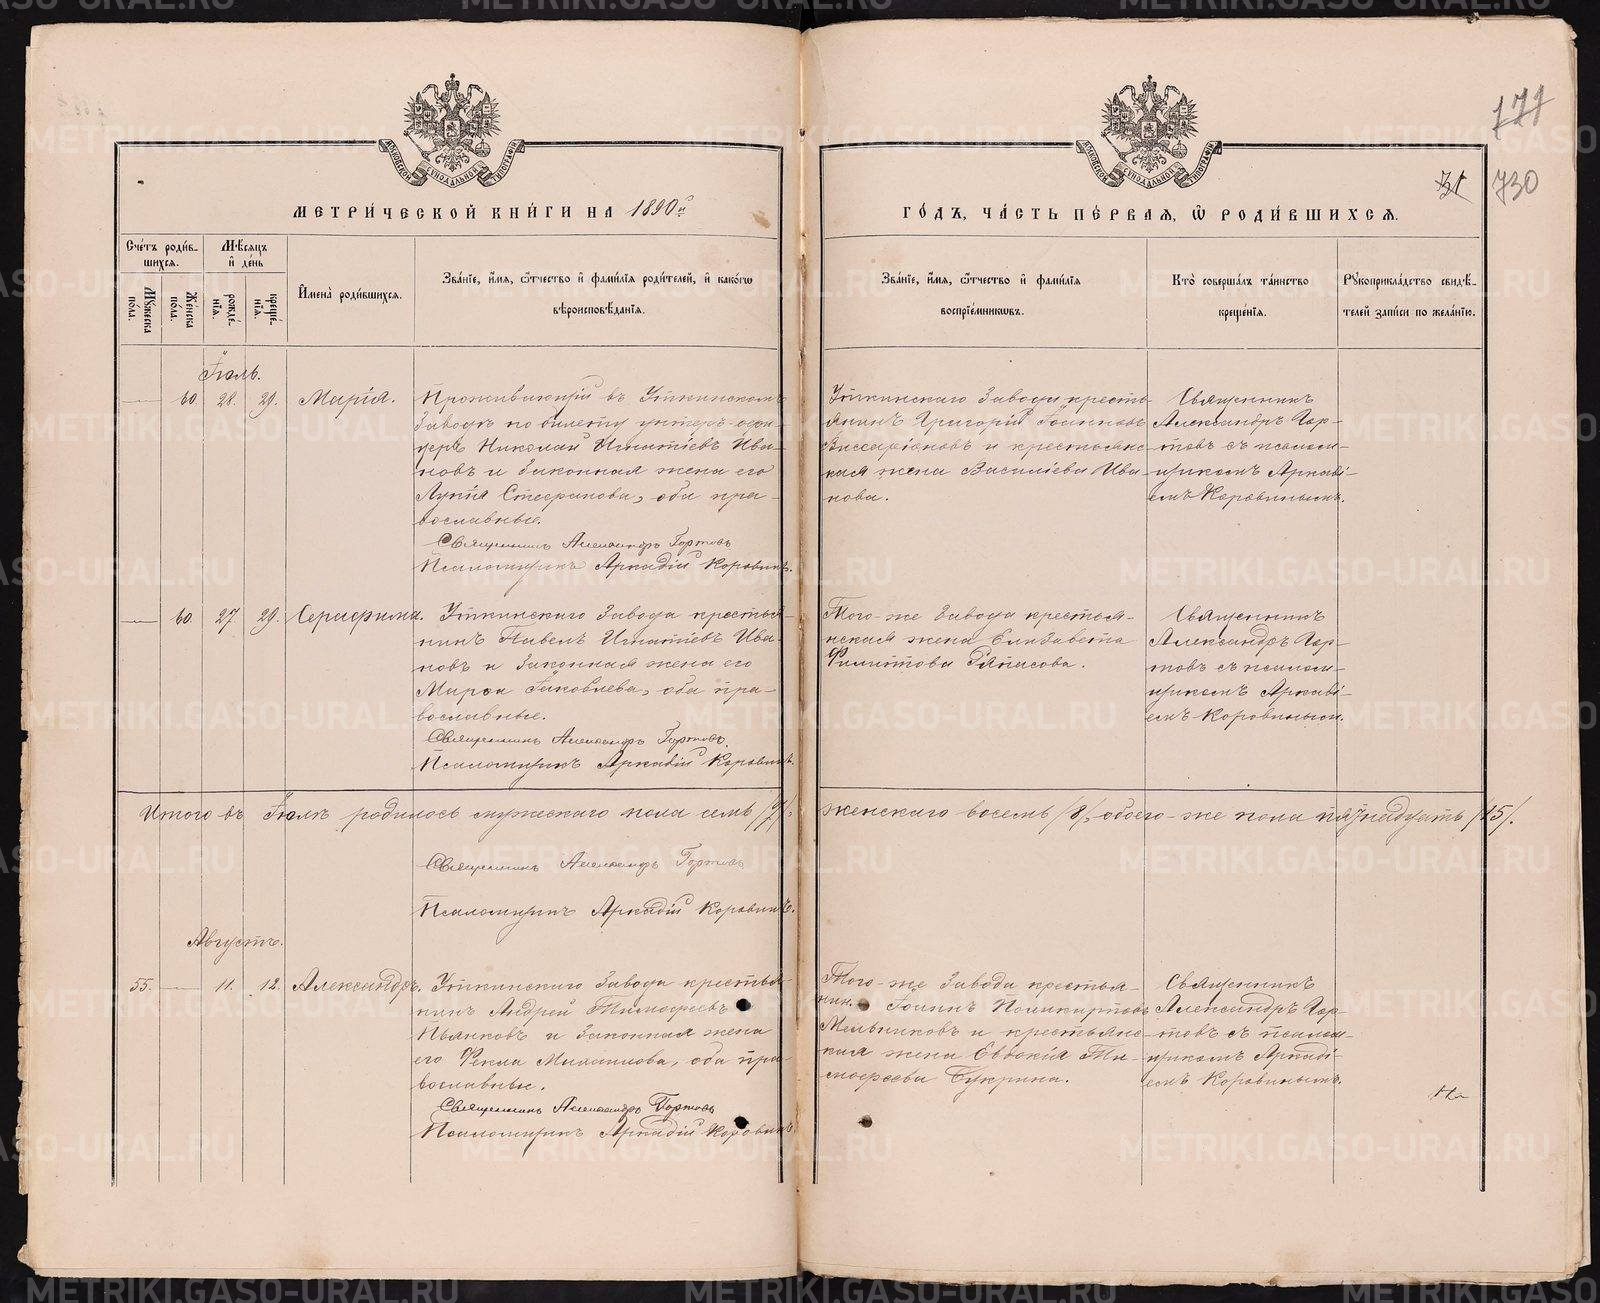 171
31 730
МОСКОВСКОЙ СѴНОДАЛЬНОЙ ТИПОГРАФІИ
МОСКОВСКОЙ СѴНОДАЛЬНОЙ ТИПОГРАФІИ
МЕТРИ́ЧЕСКОЙ КНИ́ГИ НА 1890й
ГО́ДЪ, ЧА́СТЬ ПЕ́РВАЯ, Ѡ РОДИ́ВШИХСѦ.
Сче́тъ роди́в-
шихся.
Мѣ́сяцъ
и҆ де́нь
Мꙋ́жеска
по́ла.
Же́нска
по́ла.
рожде́-
нїѧ.
креще́-
нїѧ.
И҆мена̀ роди́вшихсѧ.
Зва́нїе, и҆́мѧ, ѻ҆́тчество и҆ фами́лїѧ роди́телей, и҆ како́гѡ
вѣроисповѣ́данїѧ.
Зва́нїе, и҆́мѧ, ѻ҆́тчество и҆ фами́лїѧ
воспрїе́мникѡвъ.
Кто̀ соверша́лъ та́инство
креще́нїѧ.
Рꙋкоприкла́дство свидѣ́-
телей за́писи по жела́нїю.
Іюль.
60. 28. 29. Марія.
Проживающій въ Уткинскомъ
Заводѣ по билету унтеръ-офи-
церъ Николай Игнатіевъ Ива-
новъ и законная жена его
Лукія Стефанова, оба пра-
вославные.
Священникъ Александръ Гортовъ
Псаломщикъ Аркадій Коровинъ.
Уткинскаго Завода кресть-
янинъ Григорій Іоанновъ
Виссаріоновъ и крестьянс-
кая жена Василіева Ива-
нова.
Священникъ
Александръ Гор-
товъ съ псалом-
щикомъ Аркаді-
емъ Коровинымъ.
60. 27. 29. Серафима.
Уткинскаго Завода крестья-
нинъ Павелъ Игнатіевъ Ива-
новъ и законная жена его
Марѳа Іаковлева, оба пра-
вославные.
Священникъ Александръ Гортовъ.
Псаломщикъ Аркадій Коровинъ.
Того-же Завода крестья-
нская жена Елизавета
Филиттова
Священникъ
Александръ Гор-
товъ съ псалом-
щикомъ Аркаді-
емъ Коровиным.
Итого въ Іюлѣ родилось мужескаго пола семь /7/, женскаго восемь /8/, обоего-же пола пятнадцать /15/.
Священникъ Александръ Гортовъ
Псаломщикъ Аркадій Коровинъ.
Августъ.
55. 11. 12. Александръ.
Уткинскаго Завода крестья-
нинъ Андрей Тимофеевъ
Пьянковъ и законная жена
его Фекла Михаилова, оба пра-
вославные.
Священникъ Александръ Гортовъ
Псаломщикъ Аркадій Коровинъ.
Того-же Завода крестья-
нин. Іоаннъ Поликарповъ
Мельниковъ и крестьянс-
кая жена Евдокія Ти-
мофеева Букрина.
Священникъ
Александръ Гор-
товъ съ псалом-
щикомъ Аркаді-
емъ Коровинымъ.
METRIKI.GASO-URAL.RU